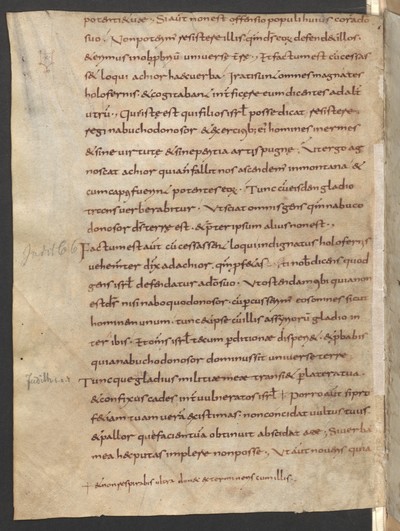 potentiae tuae. Si aūt non est offensio populi huius corā dō
suo. Non poterim' resistere illis. qm̄ ds̄ eoꝝ defendet illos.
& erimus in obprobriū universe terre. Et factum est cū cessass
& loqui achior haec verba. Irati sunt omnes magnates
holofernis & cogitabant interficere eum dicentes ad alt
utrū. Quis iste est qui filios isrl̄ posse dicat resistere
regi nabuchodonosor & exercitib; ei' homines inermes
& sine virtute & sine peritia artis pugne. Ut ergo ag
noscat achior quia fallit nos ascendem' in montana. &
cum capti fuerint potentes eoꝝ. Tunc cū eisdem gladio
transverberabitur. Ut sciat omnis gens qm̄ nabuco
donosor ds̄ terre est. & preter ipsum alius non est.
Judith c. 6
Factum est aūt cū cessassent loqui indignatus holofernis
vehementer dix̄ ad achior. Qm̄ p̄fetas. Et nob̄ dicens quod
gens isrl̄ defendatur a dō suo. Ut ostendam tibi quia non
est ds̄ nisi nabuquodonosor. cū percusserim' eos omnes sicut
hominem unum. tunc & ipse cū illis assyriorū gladio in
teribis. Et omīs isrl̄ tecum perditione disperi&. & p̄babis
quia nabuchodonosor dominus sit universe terre
Tuncque gladius militiae meae transi& p̄ latera tua
& confixus cades int̄ vulneratos isrl̄ + Porro aūt si pro
fetiam tuam veram existimas. non concidat vultus tuus
& pallor qui faciem tuā obtinuit abscedat a te. Si verba
mea haec putas impleri non posse. Ut aūt noveris quia
+ & non respirabis ultra donec exterminens cum illis.